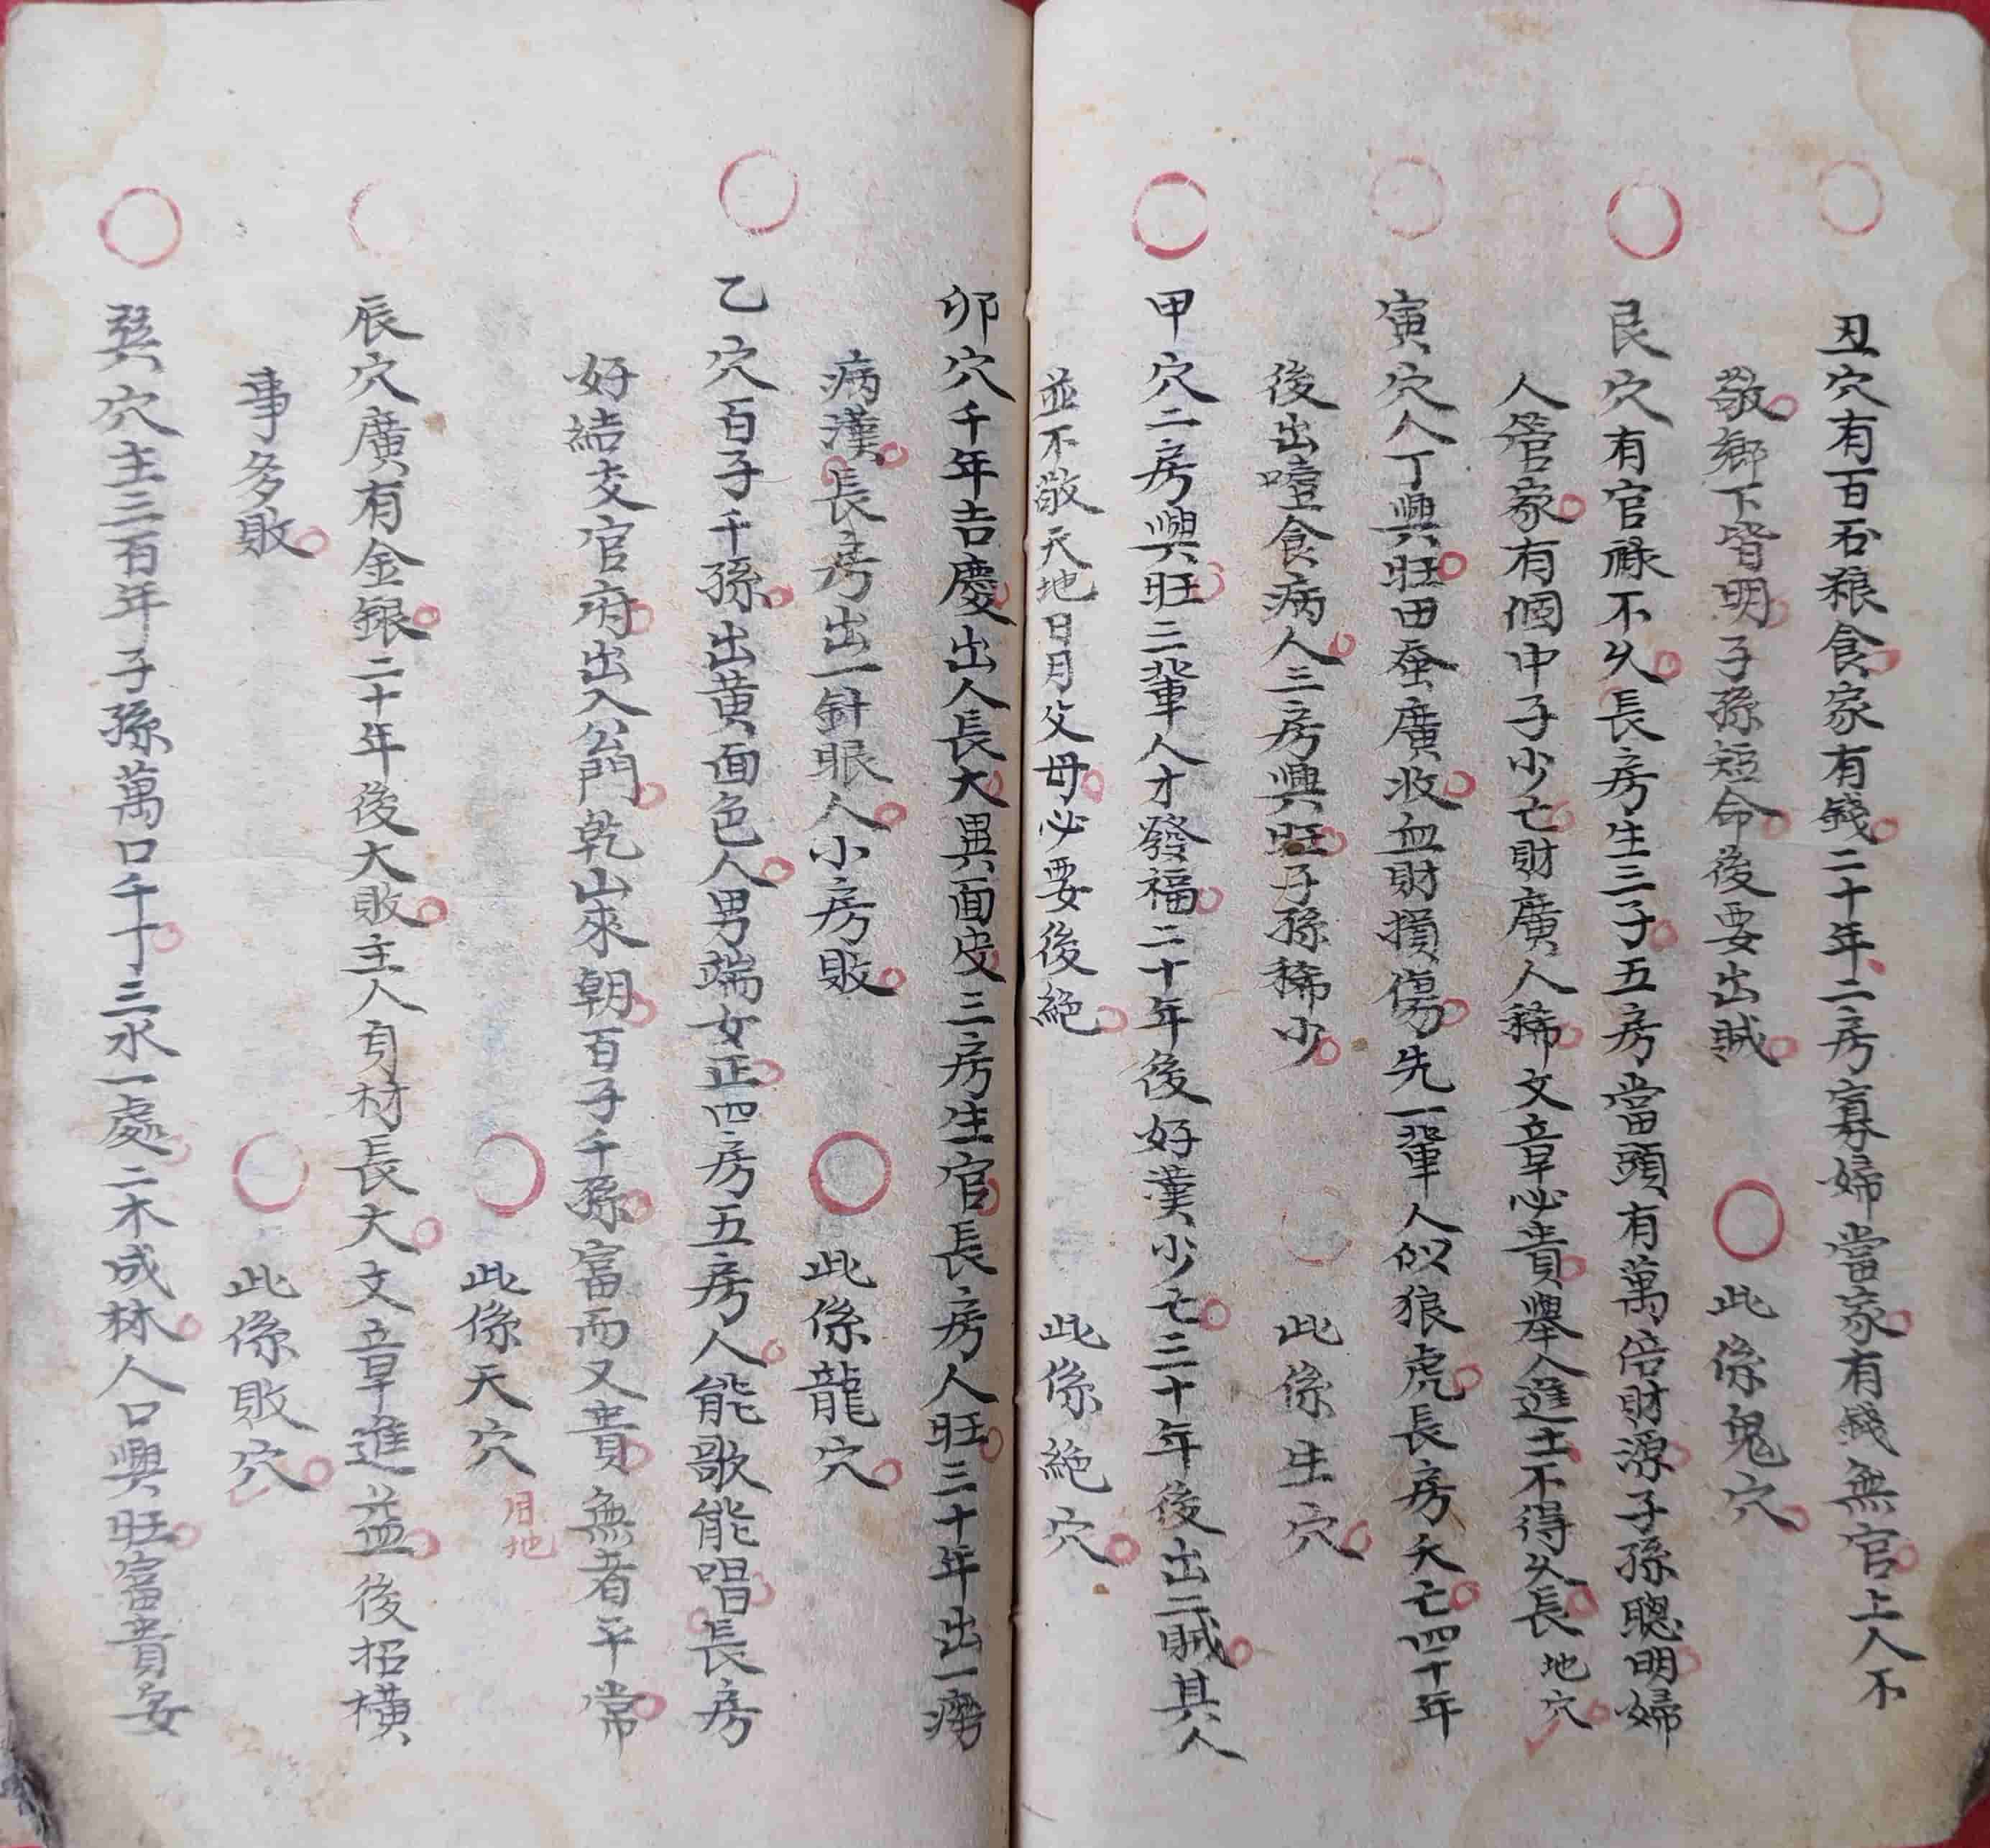 丑穴有百石粮食家有錢二十年二房寡婦當家有錢無官上人不
敬鄉下皆明子孫短命後要出賊 此係鬼穴
艮穴有官祿不久長房生三子五房當頭有萬倍財源子孫聰明婦
人管家有個中子少亡財廣人稀文章必貴舉人進士不得久長地穴
寅穴人丁興旺田蚕廣收血財損傷先一輩人似狼虎長房夭亡四十年
後出噎食病人三房興旺子孫稀少 此係生穴
甲穴二房興旺三輩人才發福二十年後好漢少亡三十年後出二賊其人
並不敬天地日月父母必要後絕 此係絕穴
卯穴千年吉慶出人長大異面皮三房生官長房人旺三十年出一癆
病漢長房出一針眼人小房敗 此係龍穴
乙穴百子千孫出黃面色人男端女正四房五房人能歌能唱長房
好結交官府出入公門乾山來朝百子千孫富而又貴無者平常
此係天穴 月地
辰穴廣有金銀二十年後大敗主人身材長大文章進益後招橫
事多敗 此係敗穴
巽穴主三百年子孫萬口千丁三水一處二木成林人口興旺富貴多